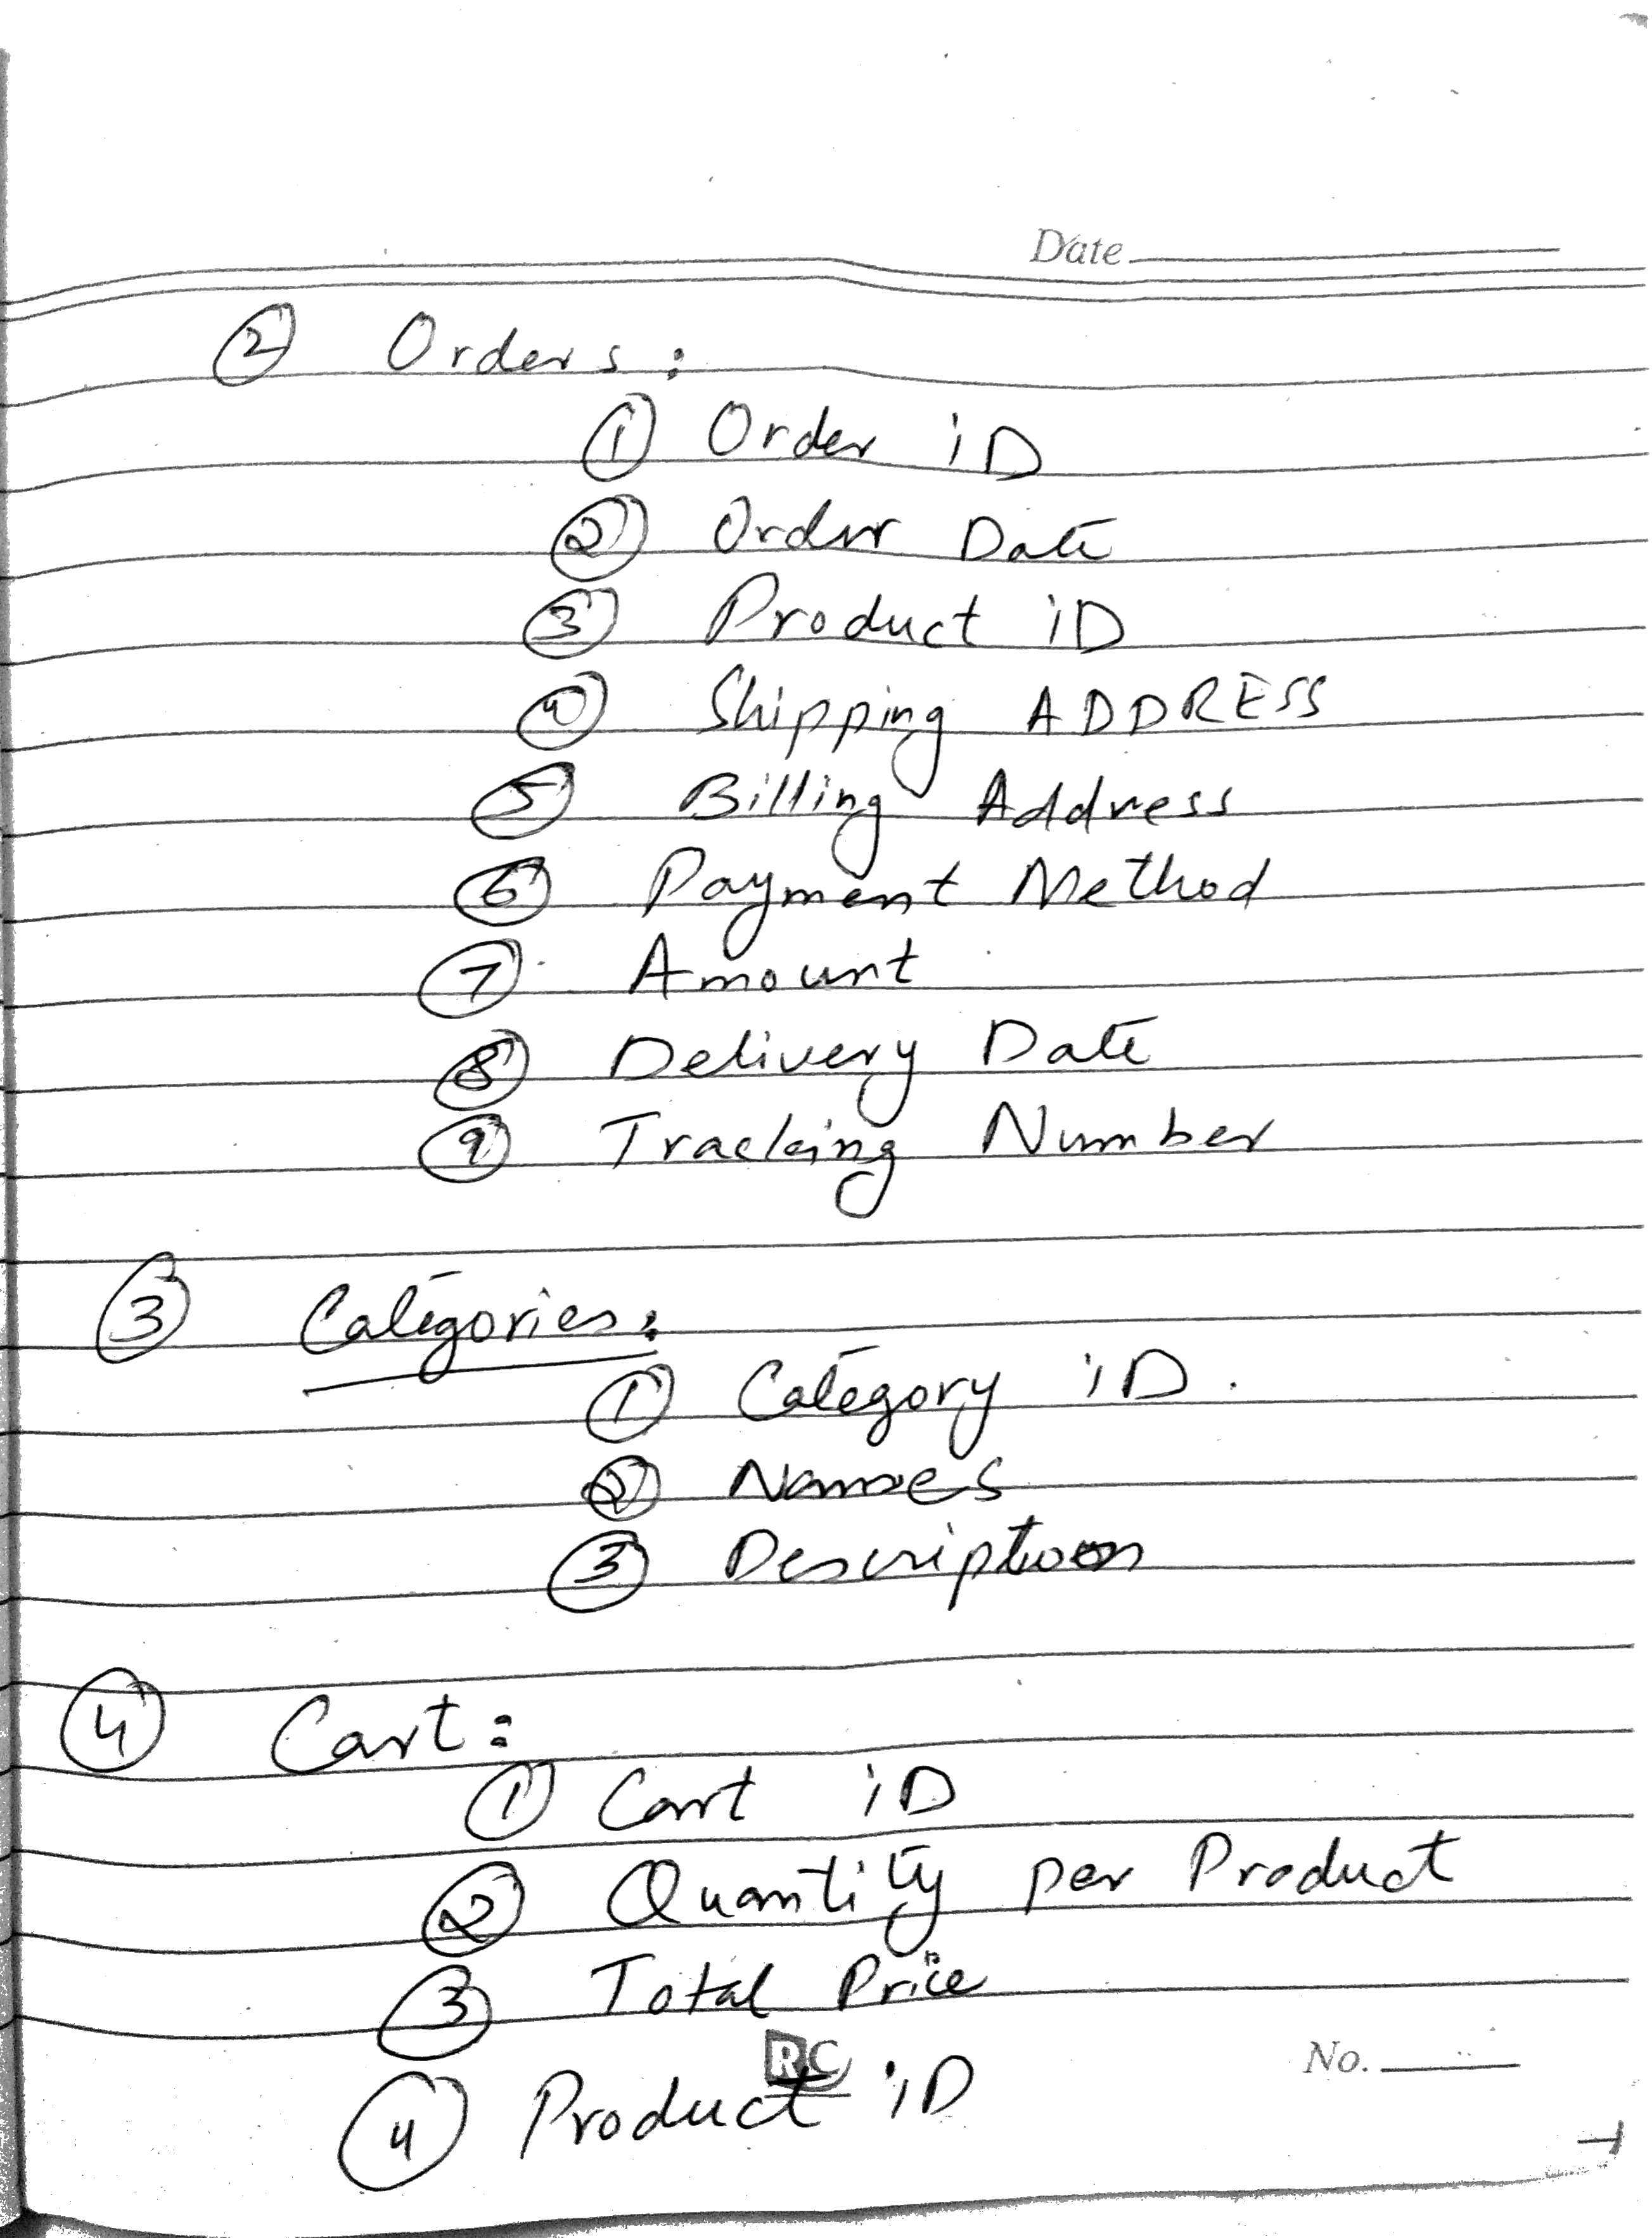 Date
② Orders:
① Order iD
② Order Date
③ Product iD
④ Shipping ADDRESS
⑤ Billing Address
⑥ Payment Method
⑦ Amount
⑧ Delivery Date
⑨ Tracking Number
③ Categories:
① Category iD.
② Names
③ Description
④ Cart:
① Cart iD
② Quantity per Product
③ Total Price
RC
No.
④ Product iD